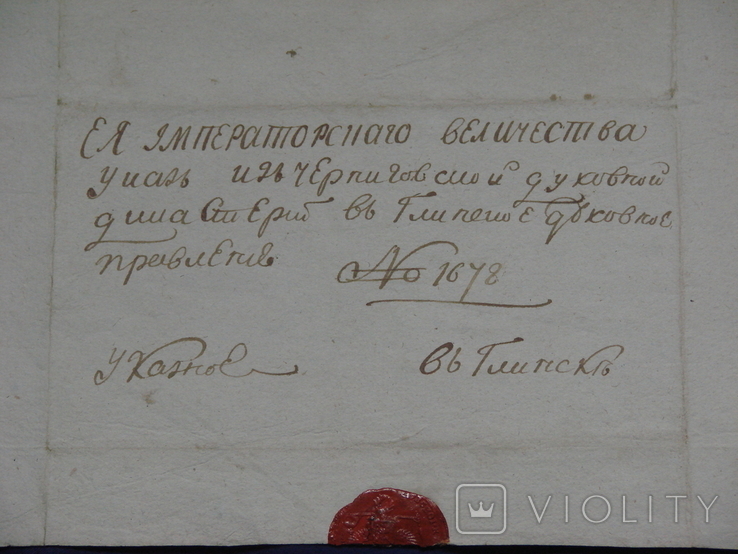 ЕЯ ІМПЕРАТОРСКАГО ВЕЛИЧЕСТВА
указъ изъ Черниговской духовной
дикастерій въ Глинское духовное
правленіе
№ 1678
Указное въ Глинскъ
VIOLITY